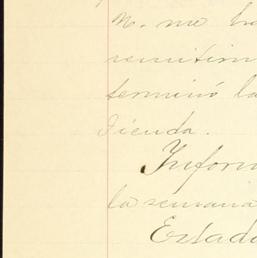 N. me ha
remitim
terminó la
Tienda.
Inform
la semana
Estado